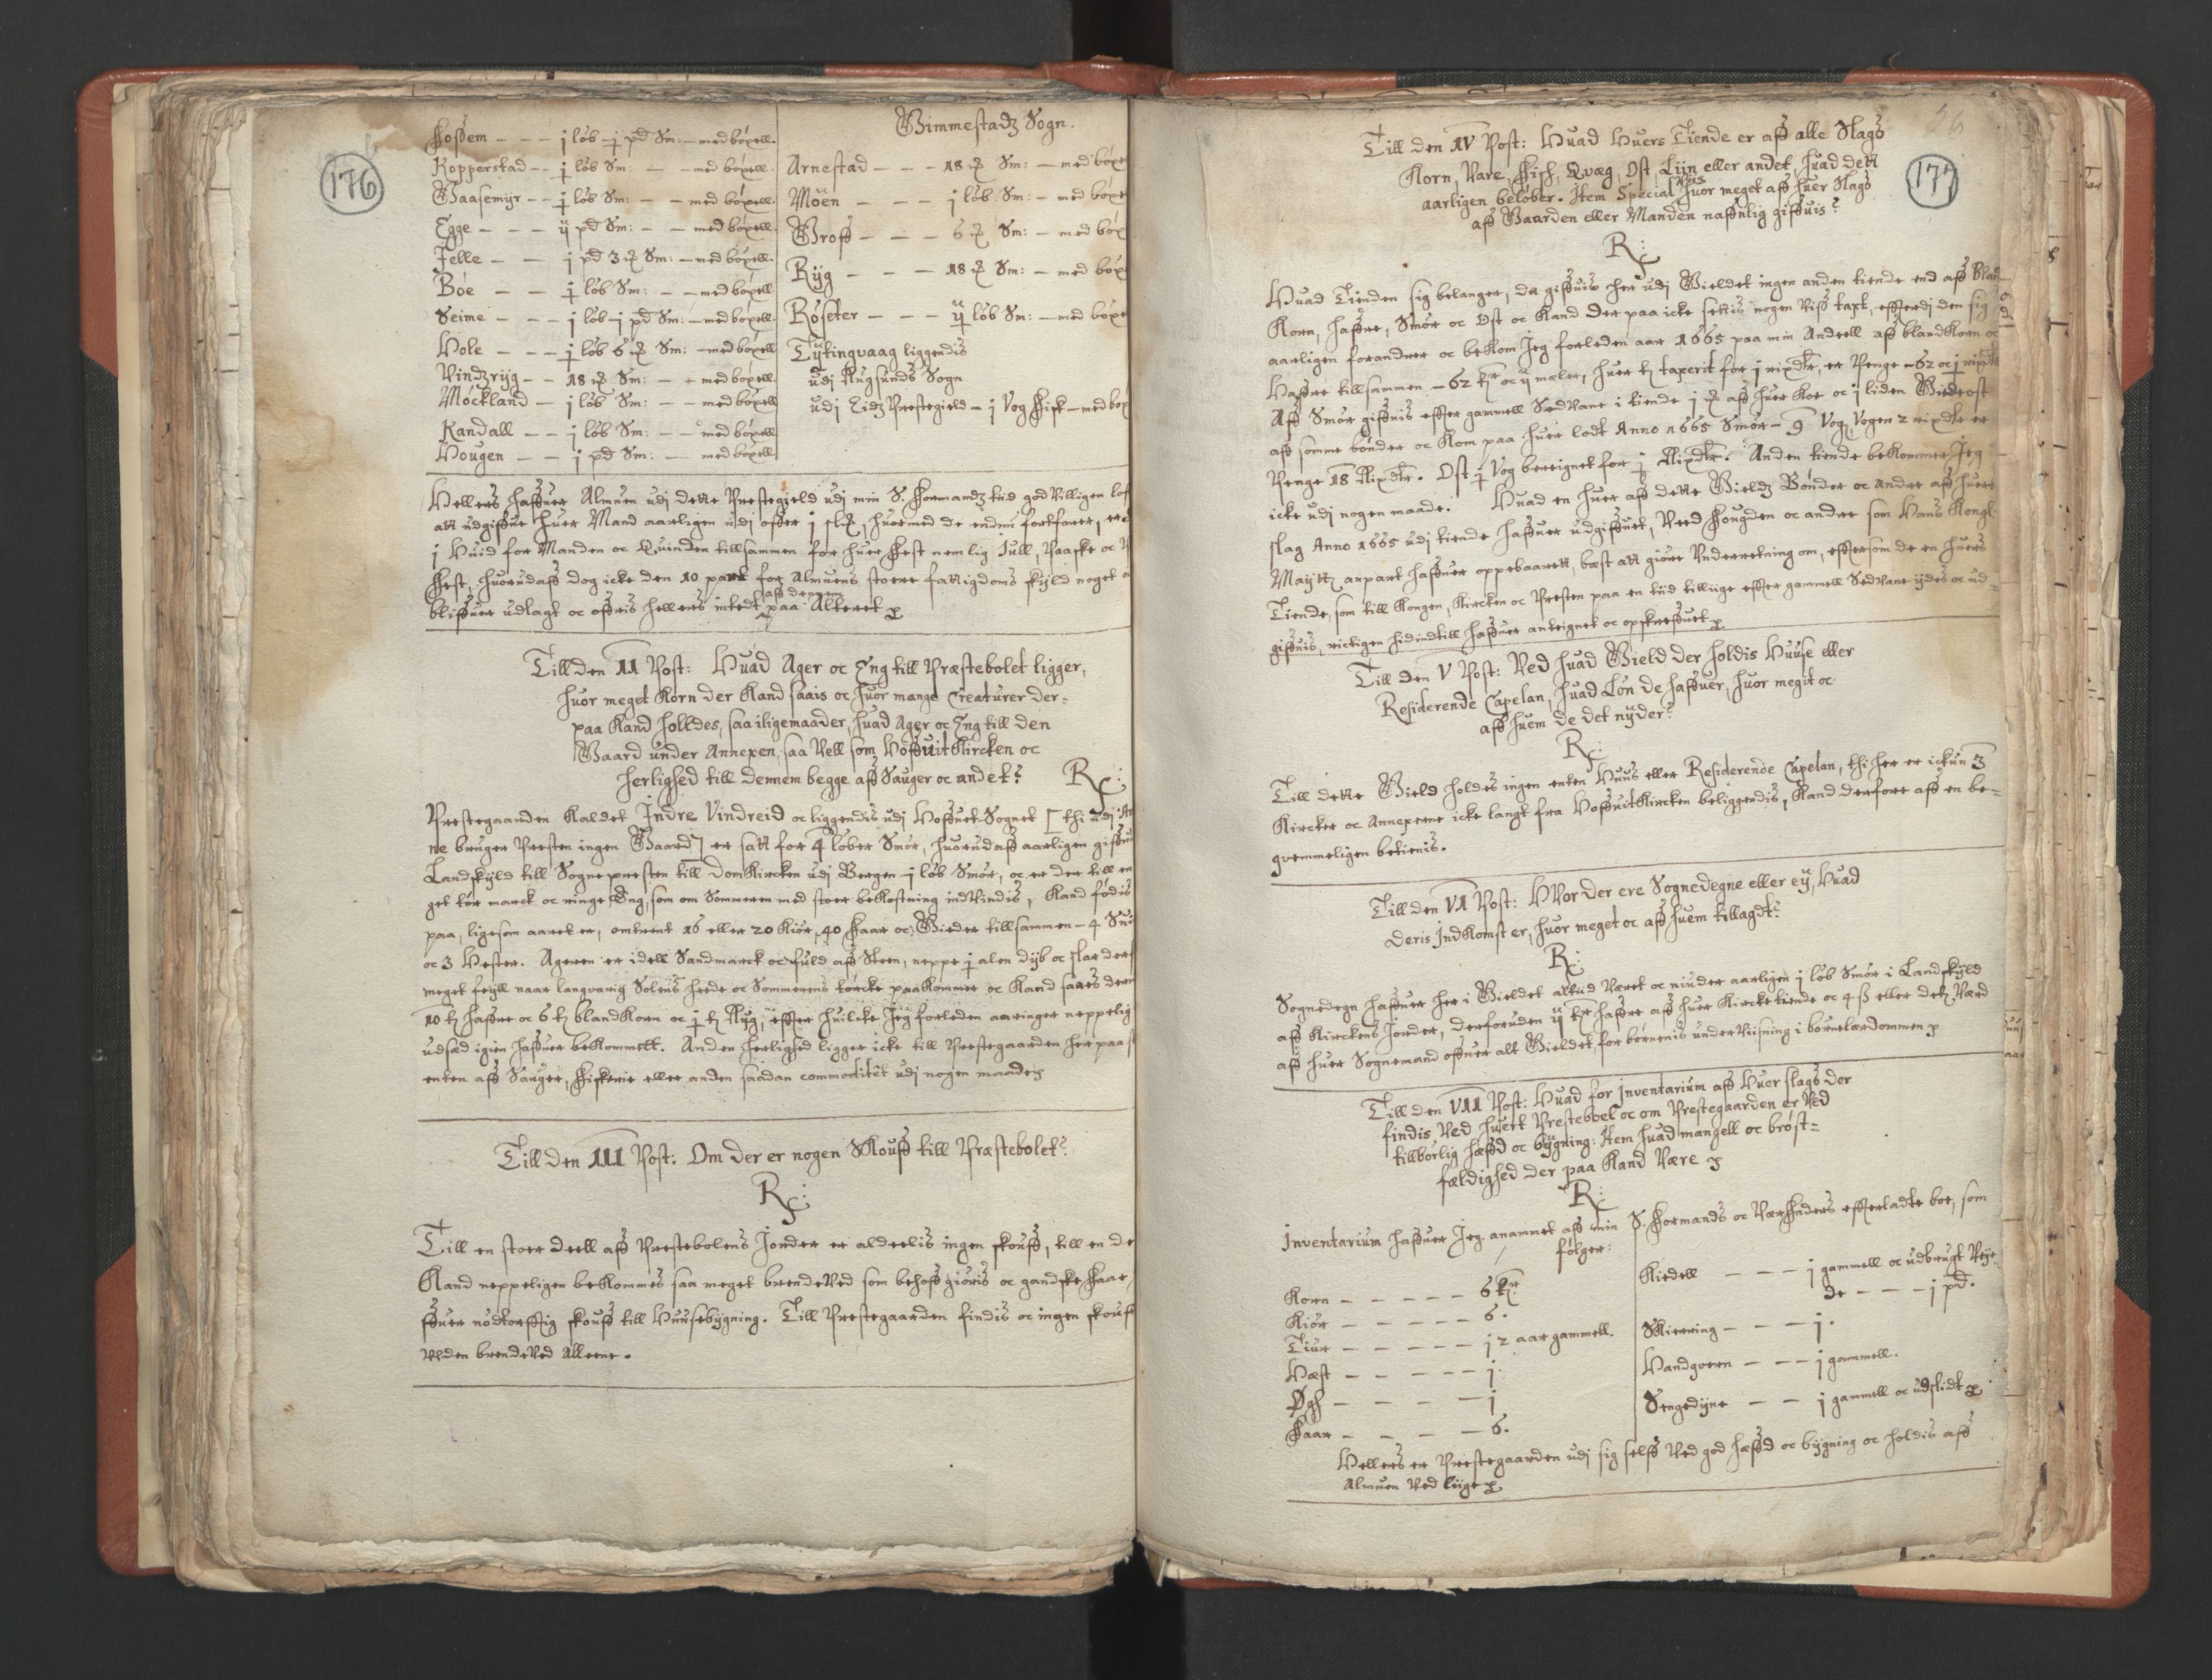 176
Fossem - - - j løb - ɉ pd Sm: - med böxell.
Kopperstad - - ɉ løb Sm: - - med böxell.
Gaasemyr - - ɉ løb Sm: - - med böxell.
Egge - - - ij pd Sm: - - med böxell.
Felle - - j pd 3 ℔ Sm: - med böxell.
Böe - - ɉ løb Sm: - - med böxell
Seime - - - j løb - j pd Sm: - med böxell.
Hole - - - ɉ løb 6 ℔ Sm: - med böxell
Vindzryg - - 18 ℔ Sm: - - med böxell.
Möckland - j løb Sm: - - med böxell
Randall - - j løb Sm: - - med böxell
Hougen - - j pd Sm: - med böxell
Gimmestadz Sogn.
Arnestad - - - 18 ℔ Sm: - med böxe
Möen - - - j løb Sm: - med böxe
Groff - - - 6 ℔ Sm: - med böx
Ryg - - - 18 ℔ Sm: - med böx
Röseter - - - ij løb Sm: - med böxe
Tytingvaag liggendis
udj Rugsunds Sogn
udj Eidz Prestegield - j Vog Fisk - med böx
Hellers haffuer Almuen udj dette Prestegield udj min S. Formandz tiid god villigen lof
att udgiffue huer Mand aarligen udj offer j slet, huormed de endnu fortfarer,
j Huid for Manden oc Quinden tillsammen for huer Fest nemlig Jull, Paaske oc
Fest, huorudaff dog icke den 10 part for Almuens stoere fattigdoms skyld noget
aff dennem
bliffuer udlagt oc offris hellers intedt paa Alteret
Till den II Post: Huad Ager oc Eng till Præstebolet ligger,
huor meget Korn der Kand saais oc huor mange Creaturer der-
paa Kand holldes, saa iligemaader, huad Ager oc Eng till den
Gaard under Annexen, saa vell som HoffuitKircken oc
herlighed till dennem begge aff Sauger oc andet? Rx:
Prestegaarden Kaldet Indre Vindreid oc liggendis udj Hoffuet-Sognet [thi udj An
ne bruger Presten ingen Gaard] er satt for 4 løber Smör, huorudaff aarligen giffui
Landskyld till Sognepresten till DomKircken udj Bergen - j løb Smör, oc er der till en
get tör marck oc ringe Eng, som om Sommeren med stoer bekostning indvindis, Kand födis
paa, ligesom aaret er, omtrent 16 eller 20 Kiör, 40 Faar oc Gieder tillsammen - 4 Snö
oc 3 Hester. Ageren er idell Sandmarck oc fuld aff Steen, neppe ɉ alen dyb oc slar der
meget feyll naar langvarig Solens heede oc Sommerens törcke paaKommer oc Kand saaes der
10 t haffre oc 6 t blandKorn oc ɉ t Rug, effter huilcke Jeg forleden aaringer neppelig
udsæd igien haffuer bekommett. Anden herlighed ligger icke till Prestegaarden her paa st
enten aff Sauger, Fiskerie eller anden saadan commoditet udj nogen maade
Till den III Post: Om der er nogen Skouff till Præstebolet?
Rx:
Till en stoer deell aff Prestebolens Jorder er alldeelis ingen skouff, till en de
Kand neppeligen bekommes saa meget brendeVed som behoff giöris oc gandske Faar
ffuer nödtorfftig skouff till Huusebygning. Till Prestegaarden findis oc ingen skouff
uden brendeVed Alleene.
177
Till den IV Post: Huad Huers Tiende er aff alle Slags
Korn, Vare, Fisk, Qvæg, Ost, Lijn eller andet, huad dett
aarligen beløber. Item Special huor meget aff huer Slags
aff Gaarden eller Manden naffnlig giffuis?
Rx:
Huad Tienden sig belanger, da giffuis her udj Gieldet ingen anden tiende end aff Blan
Korn, haffre, Smör oc Ost oc Kand der paa icke settis nogen viss taxt, efftterdj den sig
aarligen forandrer oc bekom Jeg forleden aar 1665 paa min Andeell aff blandKorn oc
Haffre tillsammen - 62 t oc ij mæler, huer t taxerit for j rixdlr, er Penge - 62 oc ɉ rixdlr
Aff Smör giffuis effter gammell SædVane i tiende j ℔ aff huer Koe oc j liden Giedeost
aff somme bønder oc Kom paa huer lodt Anno 1665 Smör - 9 Vog, Vogen 2 rixdlr er
Penge 18 Rixdlr. Ost ɉ Vog bereignet for ɉ Rixdlr. Anden tiende bekommer Jeg
icke udj nogen maade. Huad en huer aff dette Gieldz Bönder oc andre aff huert
slag Anno 1665 udj tiende haffuer udgiffuet, veed Fougden oc andre som Hans Kongl:
Maytz anpart haffuer oppebaarett, best att giöre Underretning om, efftersom de en huers
Tiende, som till Kongen, Kircken oc Presten paa en tiid tilliige effter gammell SædVane ydes oc ud-
giffuis, rictigen hidindtill haffuer antegnet oc opskreffuet
Till den V Post: Ved huad Gield der holdis Huuse eller
Residerende Capelan, huad Lön de haffuer, huor megit oc
aff huem de det nyder?
Rx:
Till dette Gield holdes ingen enten Huus eller Residerende Capelan, thi her er ickun 3
Kircker oc Annexerne icke langt fra HoffuitKircken beliggendis, Kand derfore aff en be-
qvemmeligen betienis.
Till den VI Post: HVor der ere Sognedegne eller ey, Huad
deris Indkomst er, huor meget oc aff huem tillagdt?
Rx:
Sognedegn haffuer her i Gieldet altiid været oc niuder aarligen j løb Smör i Landskyld
aff Kirckens Jorder, desforuden ij t haffre aff huer Kircketiende oc 4 ß eller dets Værd
aff huer Sognemand offuer alt Gieldet for börnenis underViisning i börnelærdommen
Till den VII Post: Huad for Inventarium aff Huer slags der
findis ved huert Presteboel oc om Prestegaarden er ved
tillbörlig hæffd oc bygning: Item huad mangell oc bröst-
fældighed der paa Kand være
Rx:
Inventarium haffuer Jeg anammet aff min S. Formands oc Værfaders effterladte boe, som
fölger:
Korn - - - - - 6 t
Kiör - - - - - 6.
Tiur - - - - - j 2 aar gammell.
Hæst - - - - - j.
Øgh - - - - j
Faar - - - - 6.
Kiedell - - - j gammell oc udbrugt Veye
de - - - j pd.
Skierring - - - j.
Handqvern - - - j gammell.
Sengedyne - - j gammell oc udslidt
Hellers er Prestegaarden udj sig selff ved god hæffd oc bygning oc holdis aff
Almuen ved liige